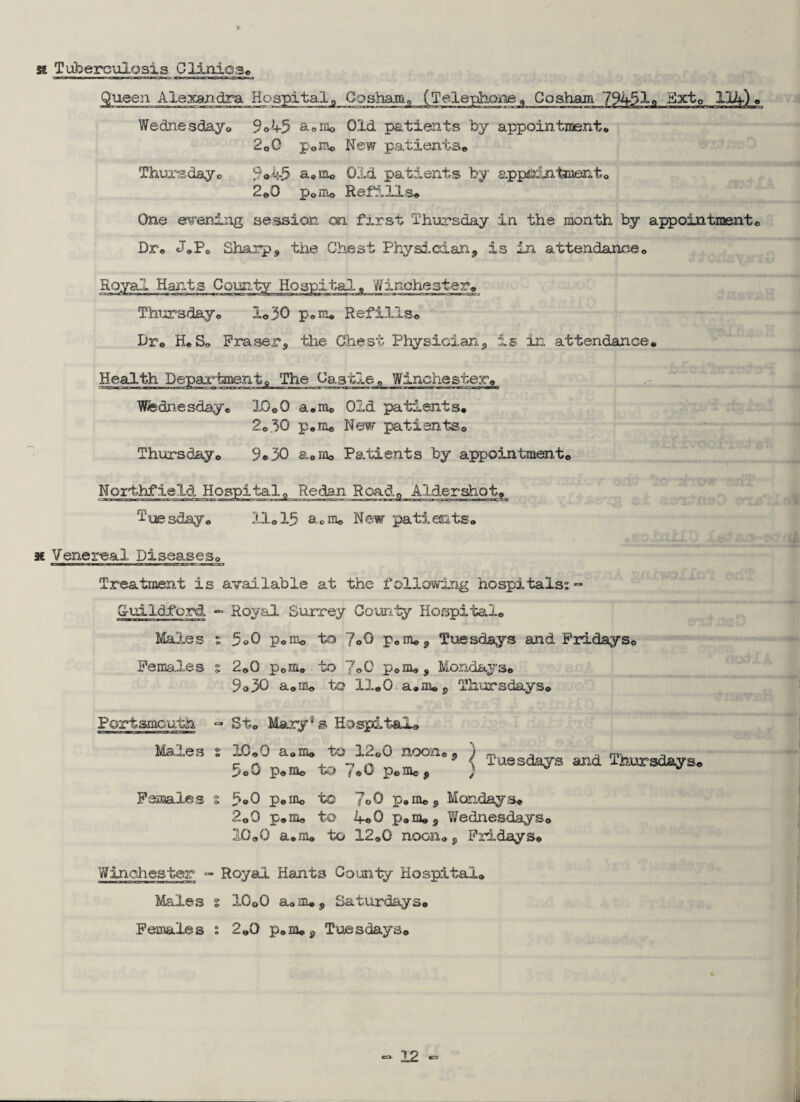 * Tuberculosis Clinics.
Queen Alexandra Hospital, Cosham. (Telephone, Cosham 79451, Ext. 114).
Wednesday. 9.45 a.m. Old patients by appointment.
2.0 p.m. New patients.
Thursday. 9.45 a.m. Old patients by appointment.
2.0 p.m. Refills.
One evening session on first Thursday in the month by appointment.
Dr. J.P. Sharp, the Chest Physician, is in attendance.
Royal Hants County Hospital, Winchester.
Thursday. 1.30 p.m. Refills.
Dr. H.S. Fraser, the Chest Physician, is in attendance.
Health Department, The Castle, Winchester.
Wednesday. 10.0 a.m. Old patients.
2.30 p.m. New patients.
Thursday. 9.30 a.m. Patients by appointment.
Northfield Hospital, Redan Road, Aldershot.
Tuesday. 11.15 a.m. New patients.
* Venereal Diseases.
Treatment is available at the following hospitals:-
Guildford - Royal Surrey County Hospital.
Males : 5.0 p.m. to 7.0 p.m., Tuesdays and Fridays.
Females : 2.0 p.m. to 7.0 p.m., Mondays.
9.30 a.m. to 11.0 a.m., Thursdays.
Portsmouth - St. Mary's Hospital.
Males : 10.0 a.m. to 12.0 noon., ) Tuesdays and Thursdays.
5.0 p.m. to 7.0 p.m., )
Females : 5.0 p.m. to 7.0 p.m., Mondays.
2.0 p.m. to 4.0 p.m., Wednesdays.
10.0 a.m. to 12.0 noon., Fridays.
Winchester - Royal Hants County Hospital.
Males : 10.0 a.m., Saturdays.
Females : 2.0 p.m., Tuesdays.
- 12 -